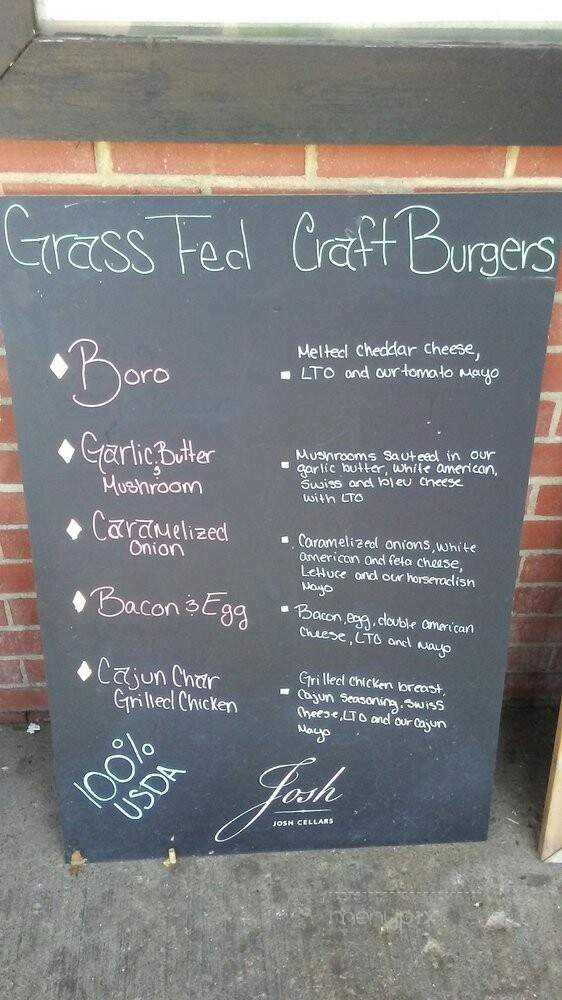 Grass Fed Craft Burgers
Boro
Melted Cheddar Cheese,
LTO and our tomato Mayo
Garlic Butter
&
Mushroom
Mushrooms Sauteed in our
garlic butter, white american,
Swiss and bleu cheese
with LTO
Caramelized
Onion
Caramelized onions, white
american and feta cheese,
Lettuce and our horseradish
Mayo
Bacon & Egg
Bacon, egg, double american
Cheese, LTO and Mayo
Cajun Char
Grilled Chicken
Grilled Chicken breast,
Cajun Seasoning, Swiss
Cheese, LTO and our Cajun
Mayo
100%
USDA
Josh
JOSH CELLARS
menupix